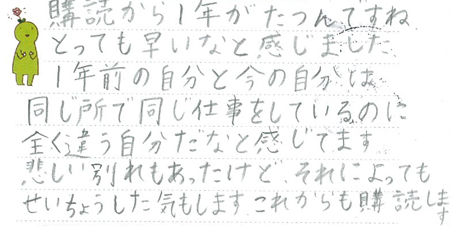 購読から1年がたつんですね
とっても早いなと感じました
1年前の自分と今の自分は
同じ所で同じ仕事をしているのに
全く違う自分だなと感じてます
悲しい別れもあったけど、それによっても
せいちょうした気もします。これからも購読します